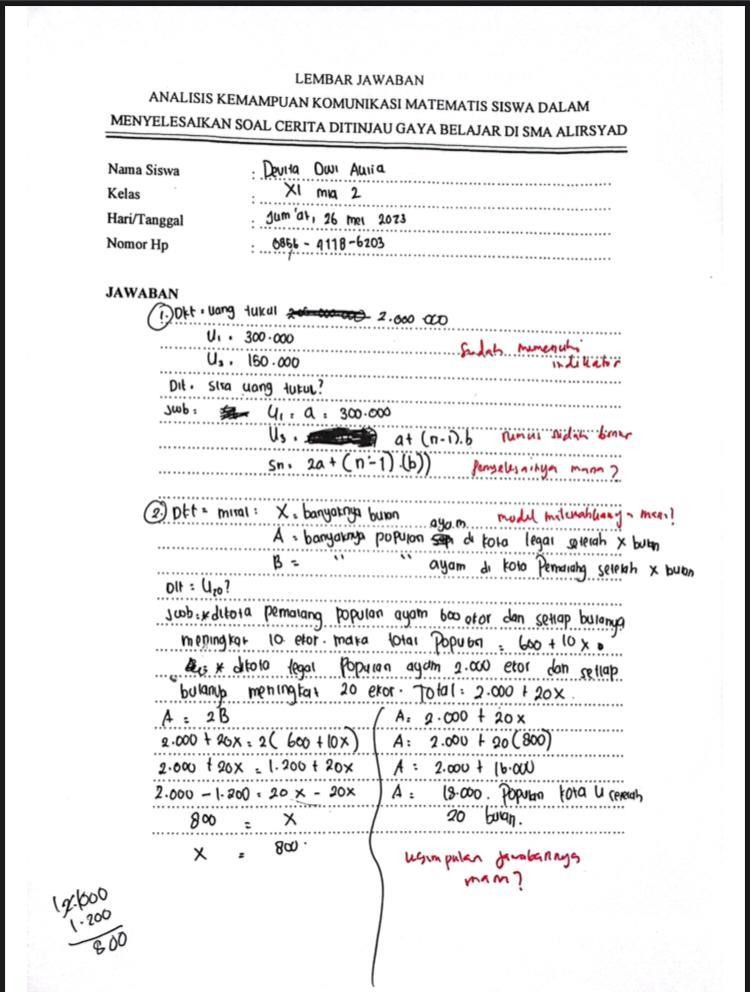 LEMBAR JAWABAN
ANALISIS KEMAMPUAN KOMUNIKASI MATEMATIS SISWA DALAM
MENYELESAIKAN SOAL CERITA DITINJAU GAYA BELAJAR DI SMA ALIRSYAD
Nama Siswa : Devita Dwi Aulia
Kelas : XI mia 2
Hari/Tanggal : Jum'at, 26 mei 2023
Nomor Hp : 0856-4118-6203
JAWABAN
1. Dkt : uang tukul 2.000.000
U1 = 300.000
U3 = 150.000
sudah memenuhi indikator
Dit = sisa uang tukul?
Jwb : U1 = a = 300.000
U3 = a + (n-1).b rumus sudah benar
Sn = 2a + (n-1).(b)) Penyelesainya mana?
2. Dkt = misal : X = banyaknya bulan
A = banyaknya populasi ayam di kota legal setelah x bulan
B = " " ayam di kota Pemalang setelah x bulan
Dit = U20?
Jwb : * dikota pemalang populasi ayam 600 ekor dan setiap bulanya
meningkat 10 ekor. maka total Populasi = 600 + 10x.
* dikota legal Populasi ayam 2.000 ekor dan setiap
bulanya meningkat 20 ekor. Total = 2.000 + 20x
A = 2B
2.000 + 20x = 2(600 + 10x)
2.000 + 20x = 1.200 + 20x
2.000 - 1.200 = 20x - 20x
800 = x
x = 800.
A = 2.000 + 20x
A = 2.000 + 20(800)
A = 2.000 + 16.000
A = 18.000. Populasi kota U setelah
20 bulan.
kesimpulan jawabannya
mana?
2.000
1.200
800